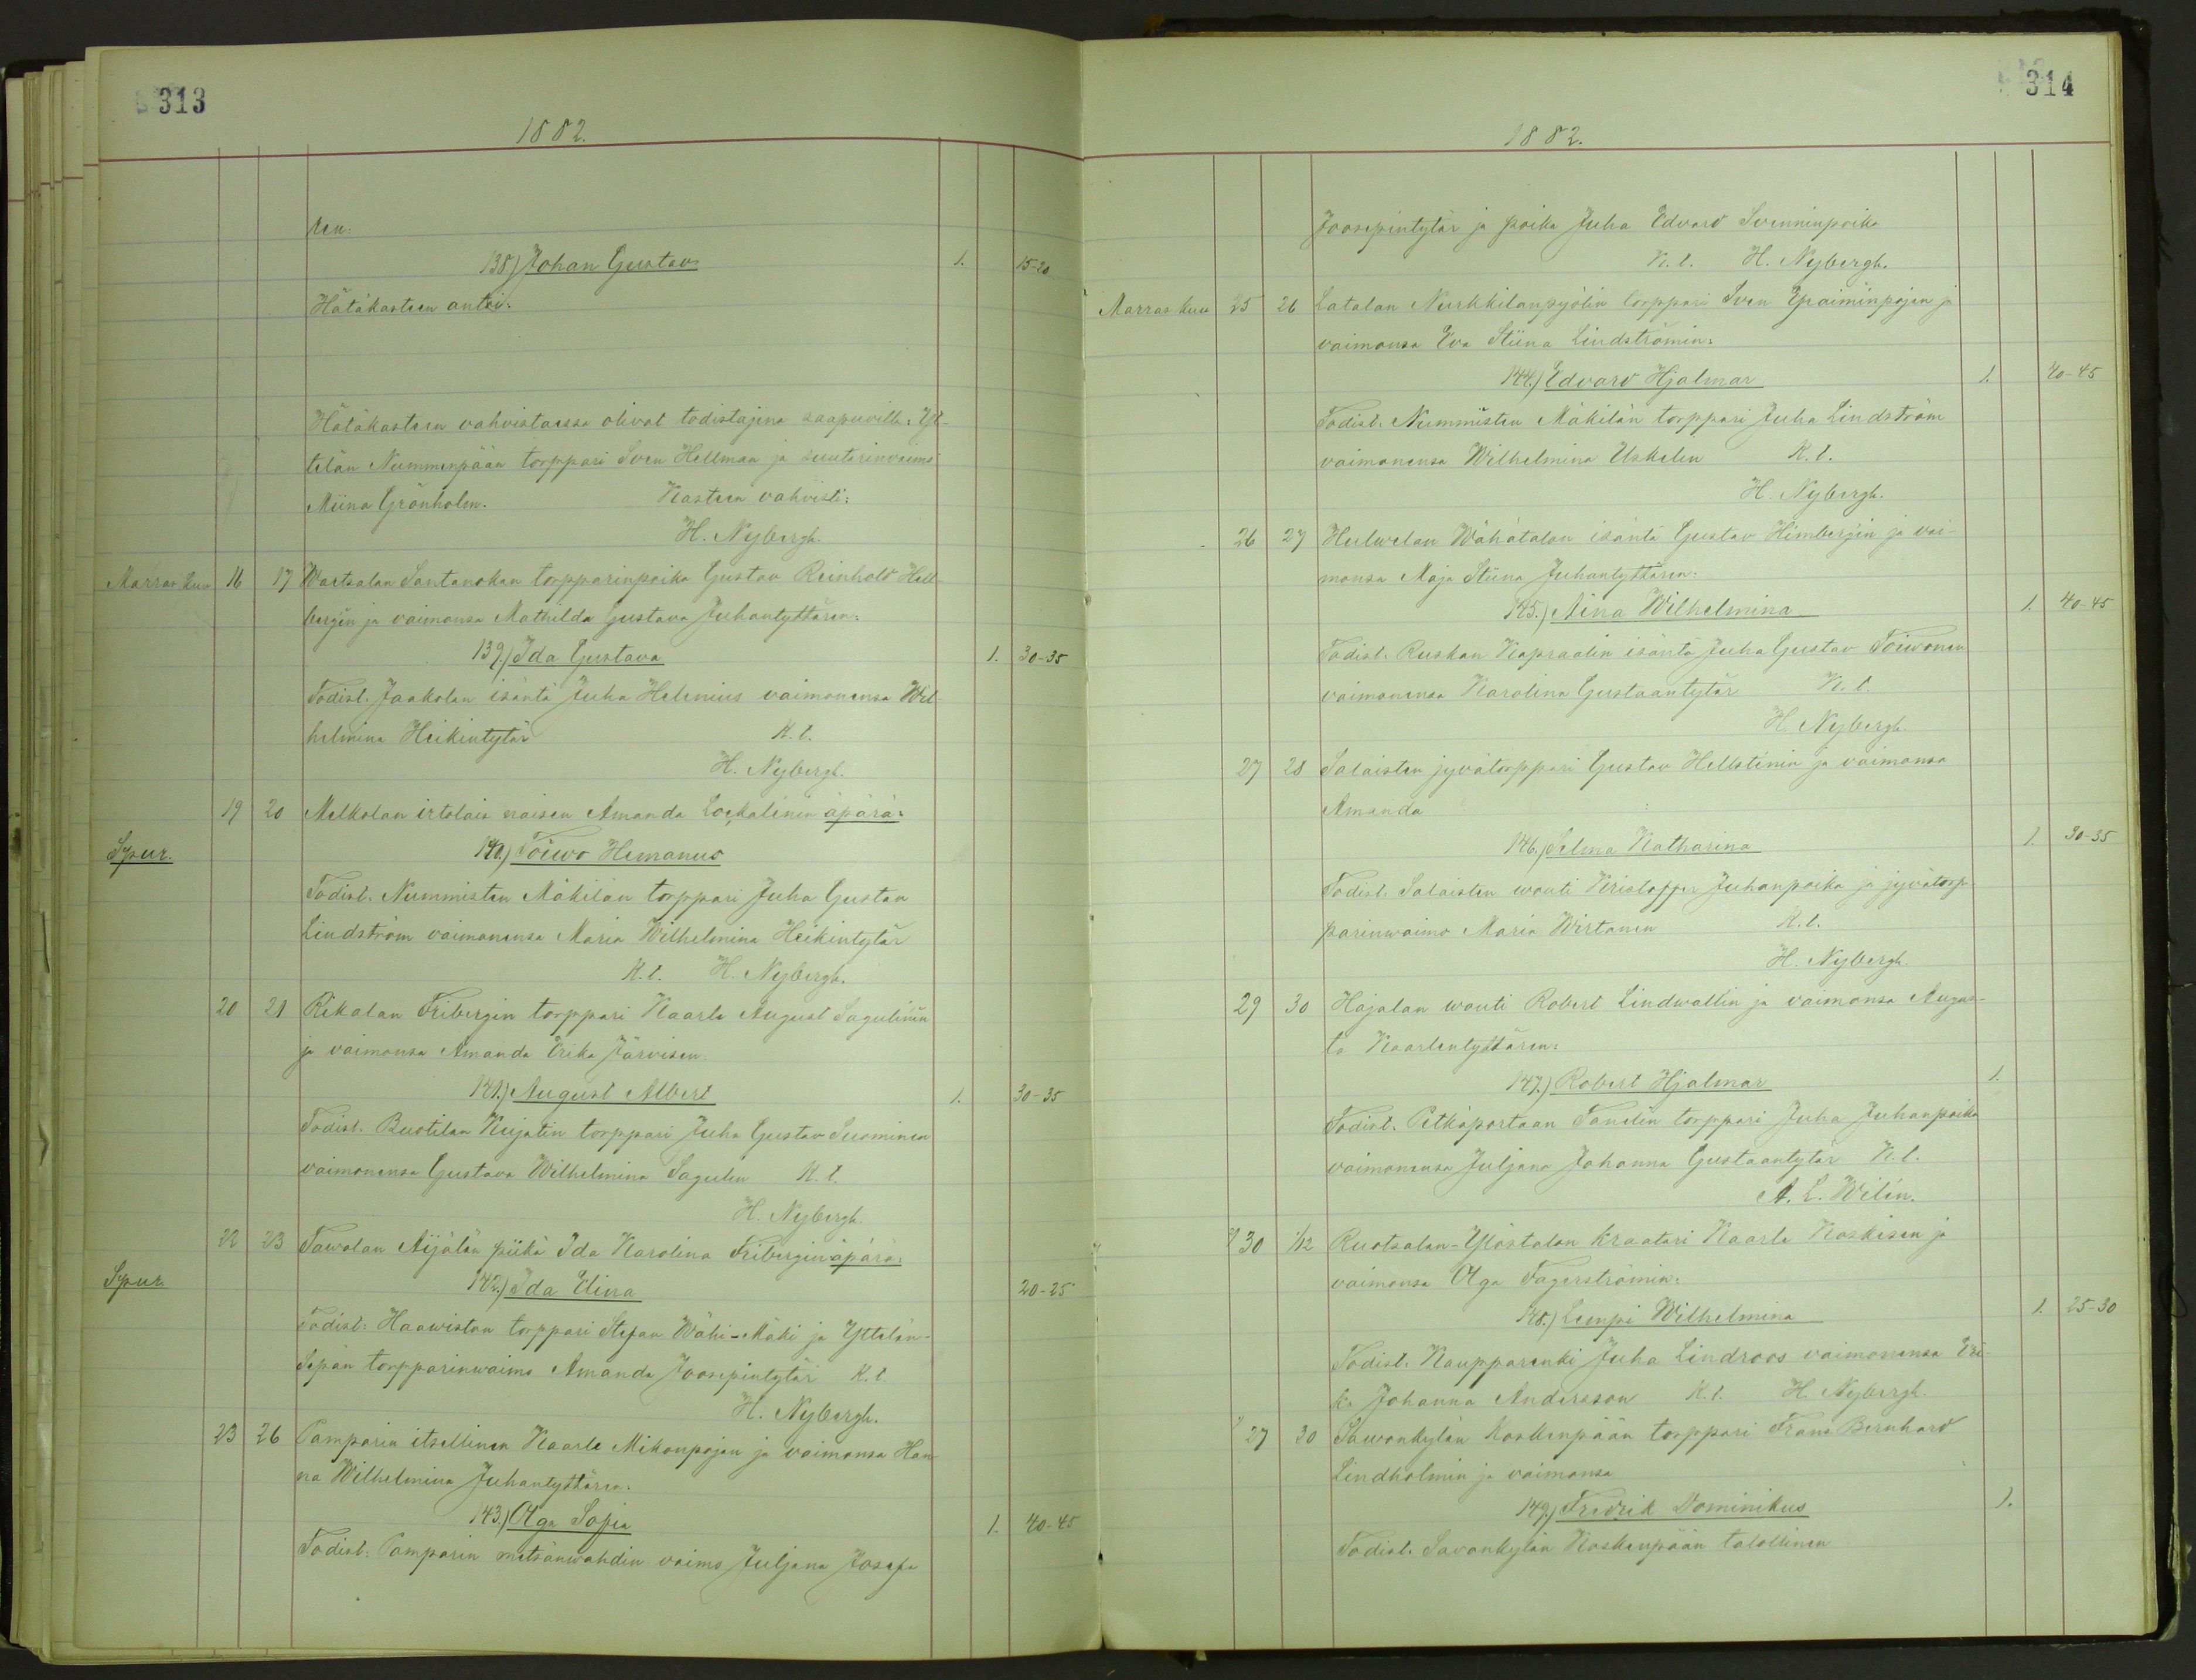 313
1882.
ren.
138.) Johan Gustav 1. 15-20
Hätäkasteen antoi:
Hätäkasteen vahvistaessa olivat todistajina saapuvilla: Yt-
telän Nummenpään torppari Sven Hellman ja suutarinvaimo
Miina Grönholm. Kasteen vahvisti:
H. Nybergh.
Marraskuu 16 17 Wartsalan Santanokan torpparinpoika Gustav Reinhold Hell-
bergin ja vaimonsa Mathilda Gustava Juhantyttären:
139.) Ida Gustava 1. 30-35
Todist. Jaakolan isäntä Juha Helenius vaimonensa Wil-
helmina Heikintytär K.t.
H. Nybergh.
19 20 Melkolan irtolais naisen Amanda Löckalinin äpärä:
Spur. 140.) Toiwo Hemanus
Todist. Nummisten Mäkilän torppari Juha Gustav
Lindström vaimonensa Maria Wilhelmina Heikintytär
K.t. H. Nybergh.
20 21 Rikalan Fribergin torppari Kaarle August Sagulinin
ja vaimonsa Amanda Erika Järvisen
141.) August Albert 1. 30-35
Todist. Ruotilan Kujatin torppari Juha Gustav Suominen
vaimonensa Gustava Wilhelmina Sagulin K.t.
H. Nybergh.
22 23 Tawolan Äijälän piikä Ida Karolina Fribergin äpärä:
Spur. 142.) Ida Elina 20-25
Todist: Haawiston torppari Stefan Wähi-Mäki ja Yttelän-
Sepän torpparinwaimo Amanda Joosepintytär K.t.
H. Nybergh.
23 26 Pamparin itsellinen Kaarle Mikonpojan ja vaimonsa Han-
na Wilhelmina Juhantyttären:
143.) Olga Sofia 1. 40-45
Todist: Pamparin metsänwahdin vaimo Juljana Josefa
314
1882.
Joosepintytär ja poika Juha Edvard Svenninpoika
K.t. H. Nybergh.
Marraskuu 25 26 Latalan Nurkkilanpyölin torppari Sven Epraiminpojan ja
vaimonsa Eva Stiina Lindströmin:
144.) Edvard Hjalmar 1. 40-45
Todist. Nummisten Mäkilän torppari Juha Lindström
vaimonensa Wilhelmina Uskelin K.t.
H. Nybergh.
26 27 Hulwelan Wähätalon isäntä Gustav Himbergin ja vai-
monsa Maja Stiina Juhantyttären:
145.) Aina Wilhelmina 1. 40-45
Todist. Ruskan Kapraalin isäntä Juha Gustav Toiwonen
vaimonensa Karolina Gustaantytär K.t.
H. Nybergh.
27 28 Salaisten jyvätorppari Gustav Hellstenin ja vaimonsa
Amanda :
146.) Selma Katharina 1. 30-35
Todist. Salaisten wouti Kristoffer Juhanpoika ja jyvätorp-
parinwaimo Maria Wirtanen K.t.
H. Nybergh.
29 30 Hajalan wouti Robert Lindwallin ja vaimonsa Augus-
ta Kaarlentyttären:
147.) Robert Hjalmar 1.
Todist. Pitkäportaan Tanelin torppari Juha Juhanpoika
vaimonensa Juljana Johanna Gustaantytär K.t.
A. L. Wilén.
30 1/12 Ruotsalan-Ylöstalon kraatari Kaarle Koskisen ja
vaimonsa Olga Fagerströmin:
148.) Lempi Wilhelmina 1. 25-30
Todist. Kaupparenki Juha Lindroos vaimonensa Eri-
ka Johanna Andersson K.t. H. Nybergh.
27 30 Sawonkylän Koskenpään torppari Frans Bernhard
Lindholmin ja vaimonsa
149.) Fredrik Dominikus 1.
Todist. Savonkylän Koskenpään talollinen